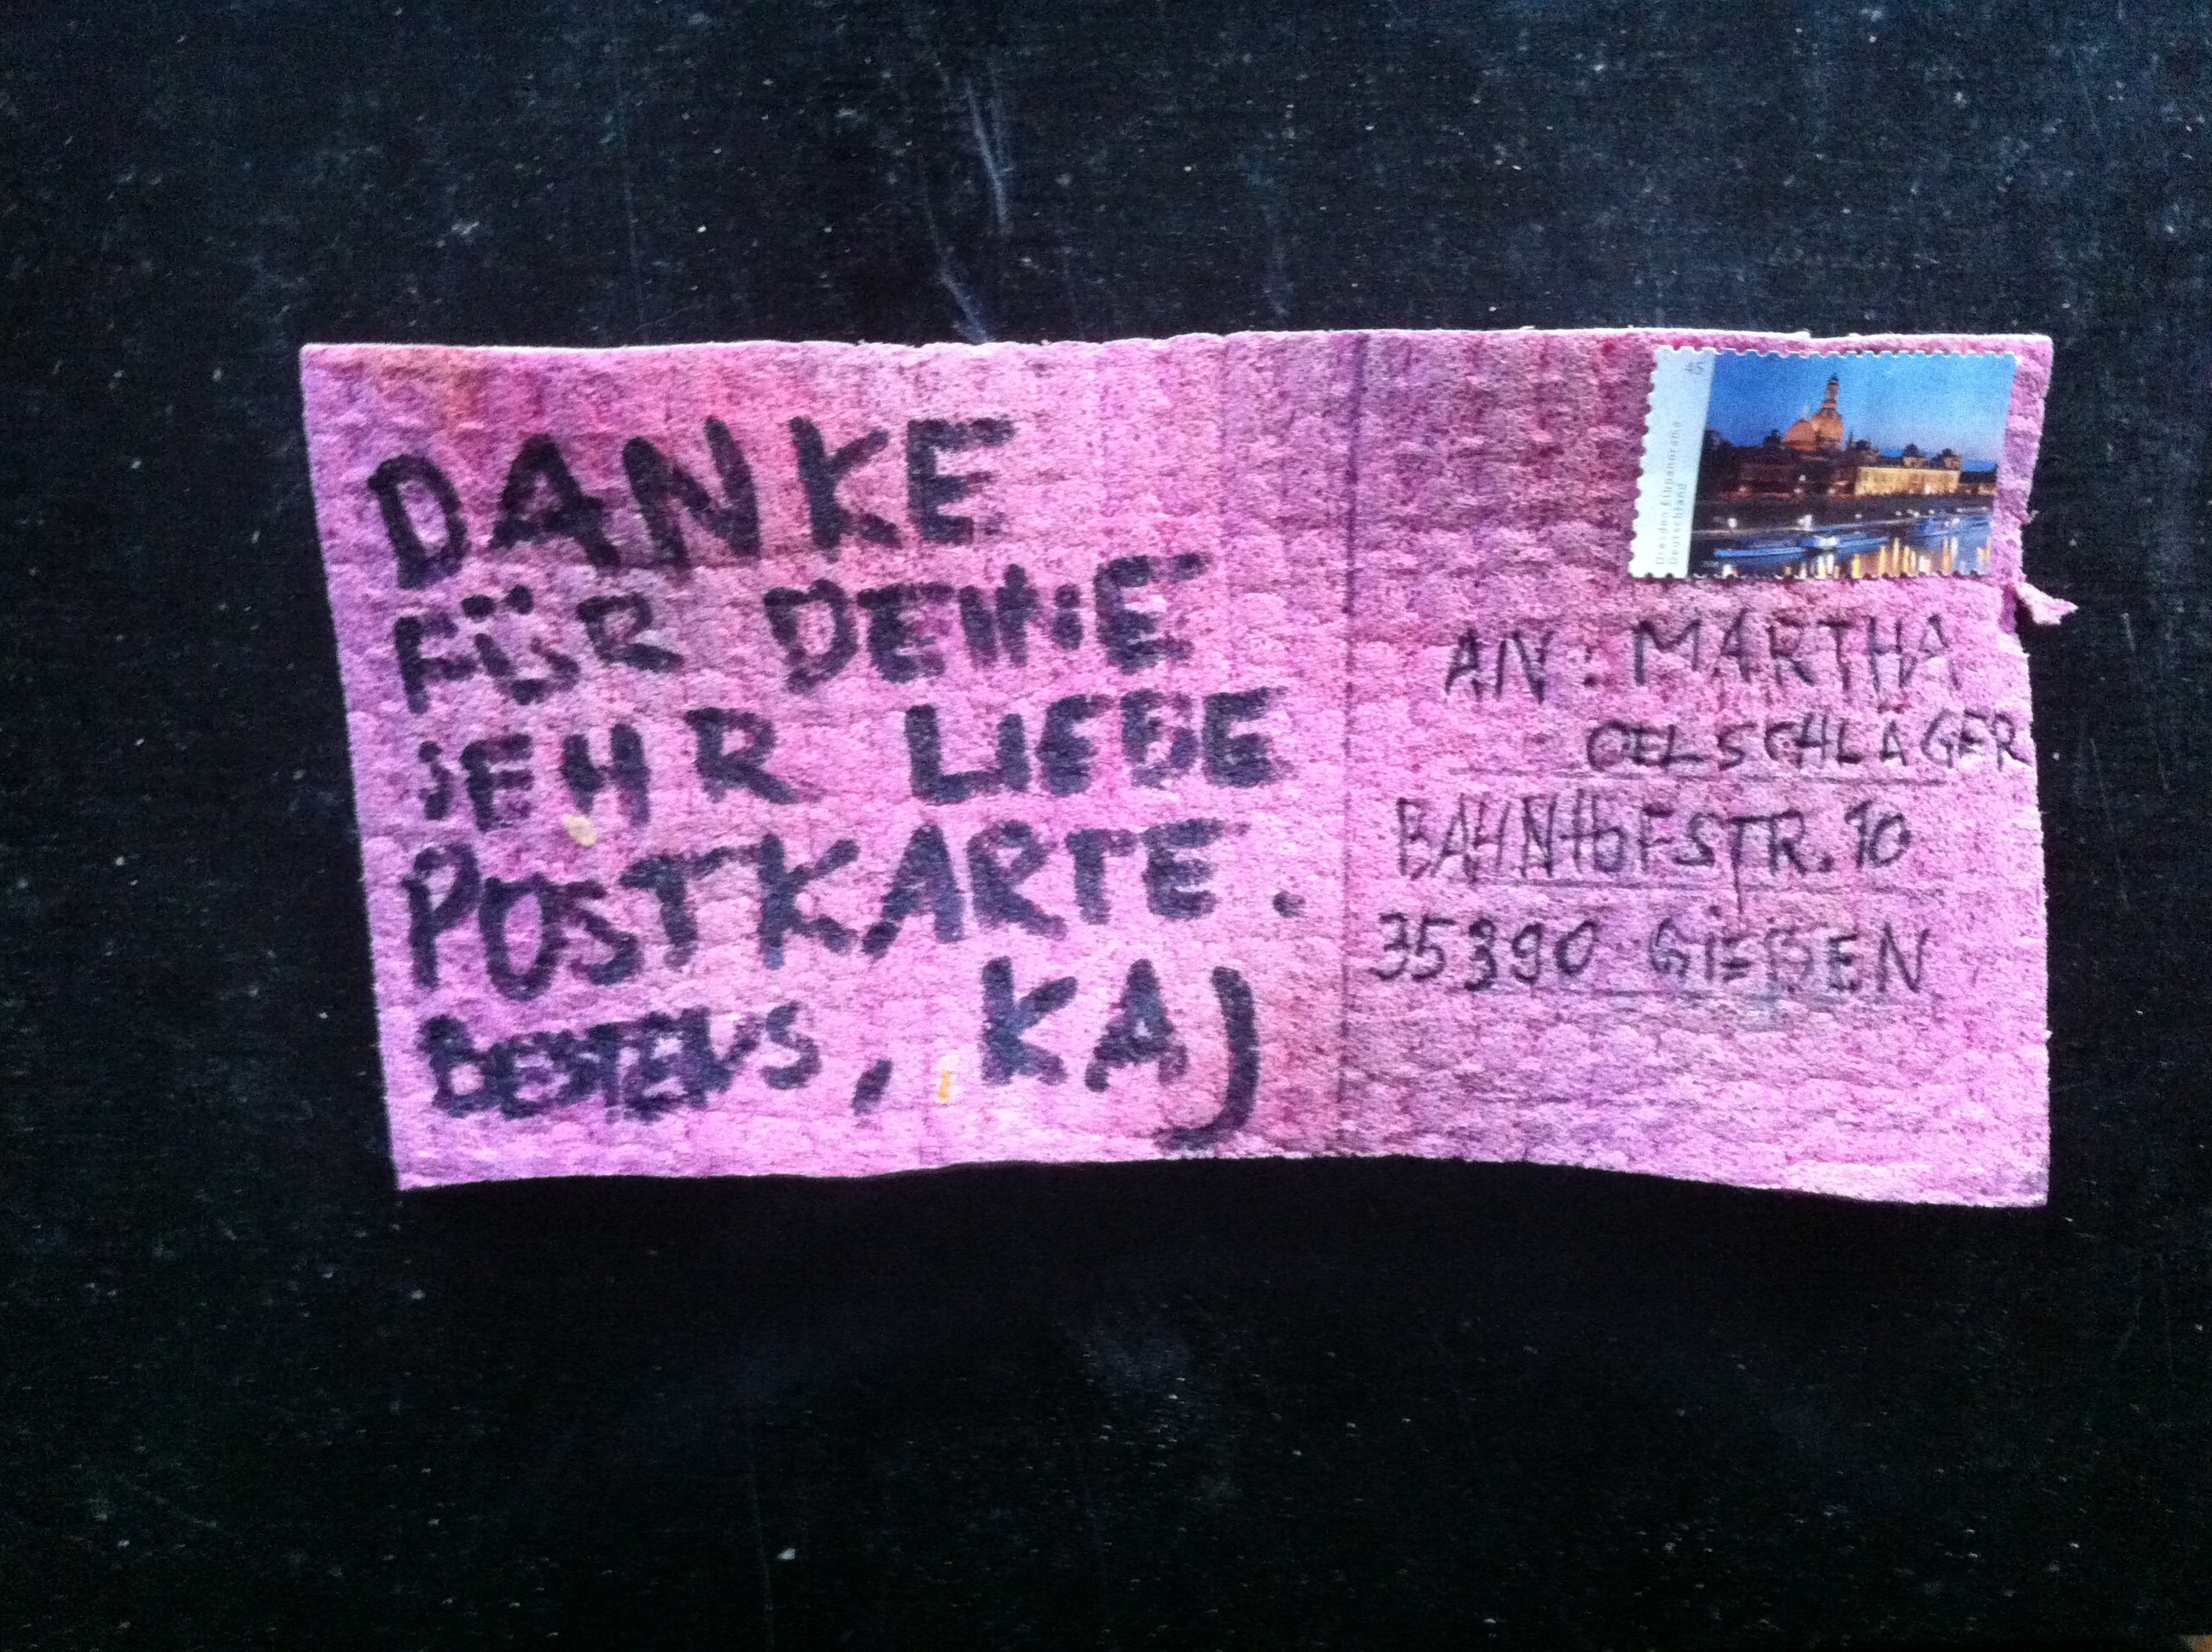 DANKE
FÜR DEINE
SEHR LIEBE
POSTKARTE.
BESTENS, KAJ
45
Dresden Elbpanorama
Deutschland
AN: MARTHA
OELSCHLÄGER
BAHNHOFSTR. 10
35390 GIEßEN